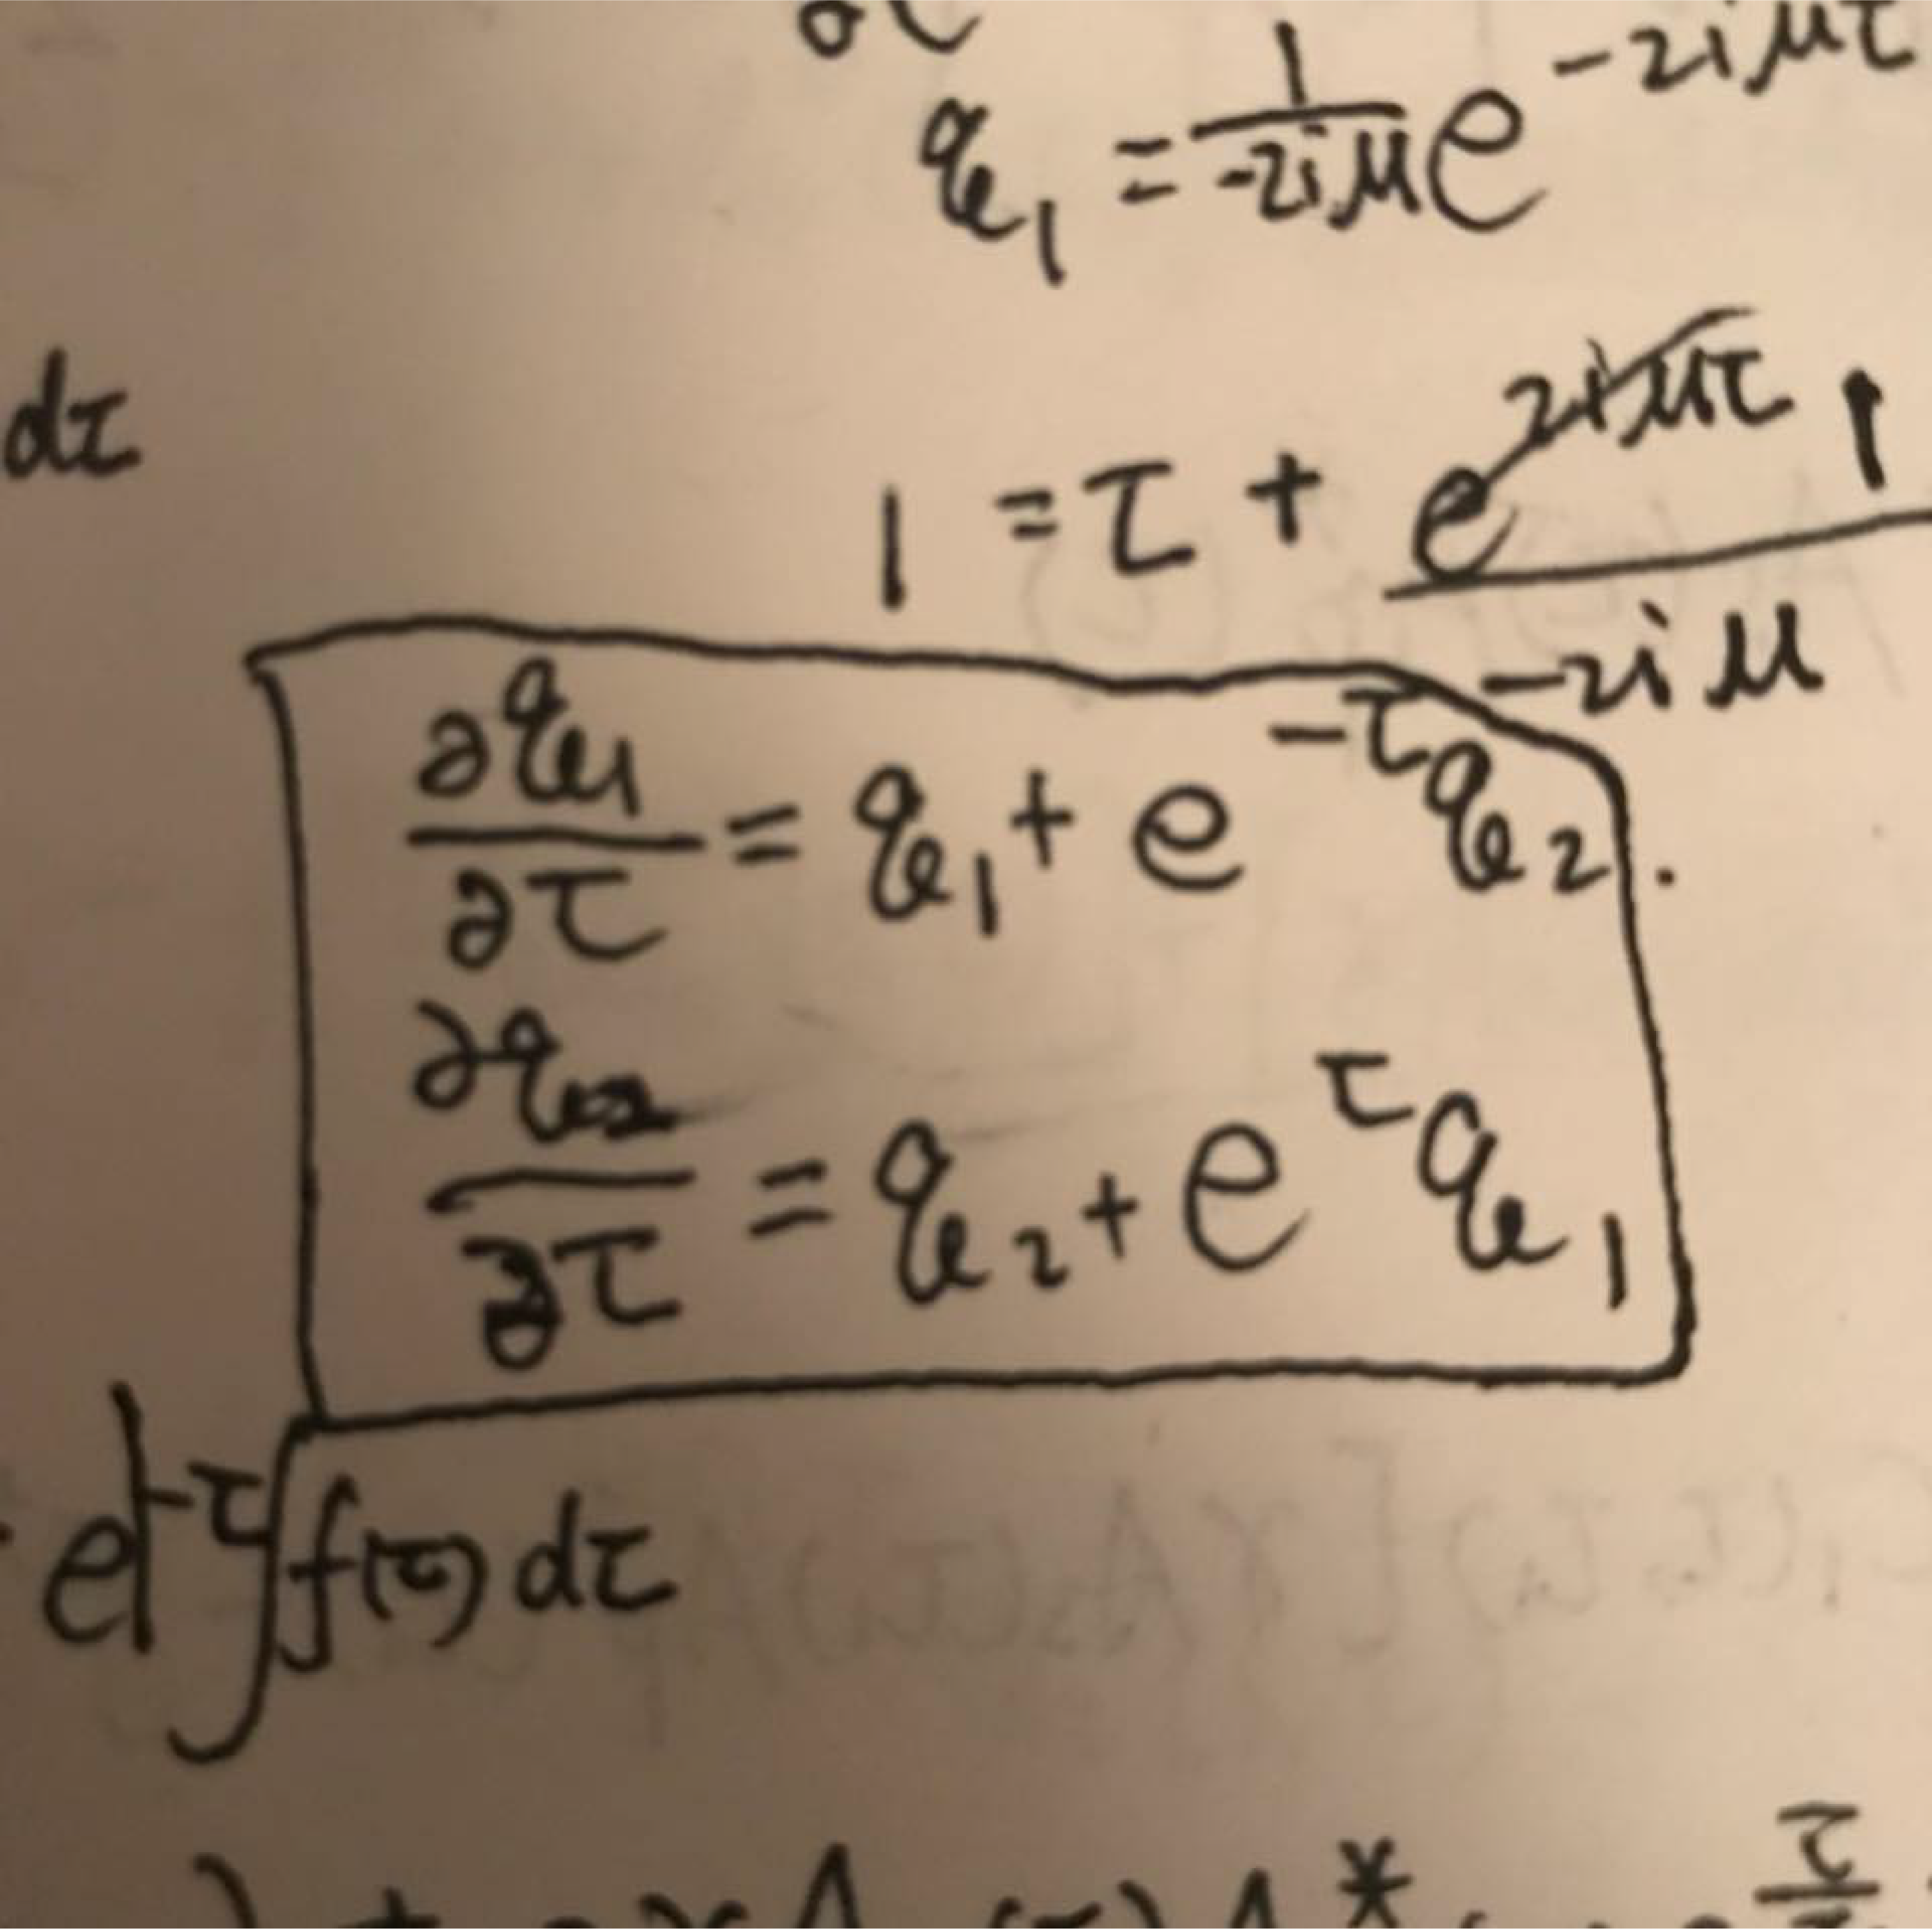 q₁ = 1/(-2iμ) e^(-2iμτ)
dτ
1 = τ + e^(2iμτ) 1/(-2iμ)
∂q₁/∂τ = q₁ + e^(-τ) q₂.
∂q₂/∂τ = q₂ + e^τ q₁
e^(-τ) ∫ f(τ) dτ